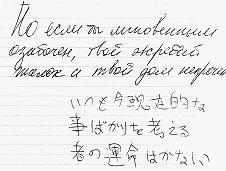 Но если ты мгновенным
озабочен, твой жребий
жалок и твой дом непрочен
いつも今現在的な
事ばかりを考える
者の運命はかない